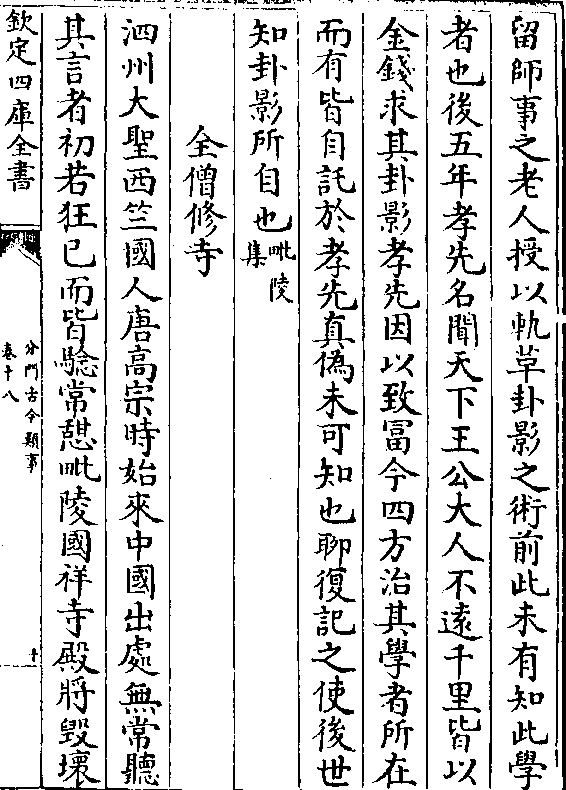 留師事之老人授以軌草卦影之術前此未有知此學
者也後五年孝先名聞天下王公大人不遠千里皆以
金錢求其卦影孝先因以致富今四方治其學者所在
而有皆自託於孝先真偽未可知也聊復記之使後世
知卦影所自也毗陵集
全僧修寺
泗州大聖西竺國人唐高宗時始來中國出處無常聽
其言者初若狂已而皆驗常憇毗陵國祥寺殿將毀壞
欽定四庫全書
分門古今類事
卷十八
十